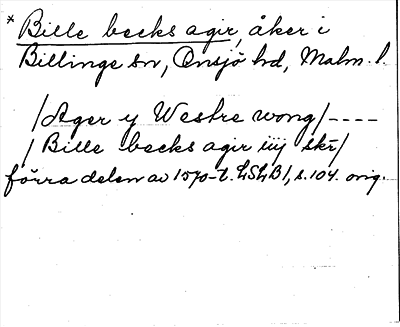 * Bille becks agir, åker i
Billinge sn, Onsjö hd, Malm. l.
/Ager y Westre wong/----
/Bille becks agir iiij skr/
förra delen av 1570-t. LSLB1, s.104. orig.